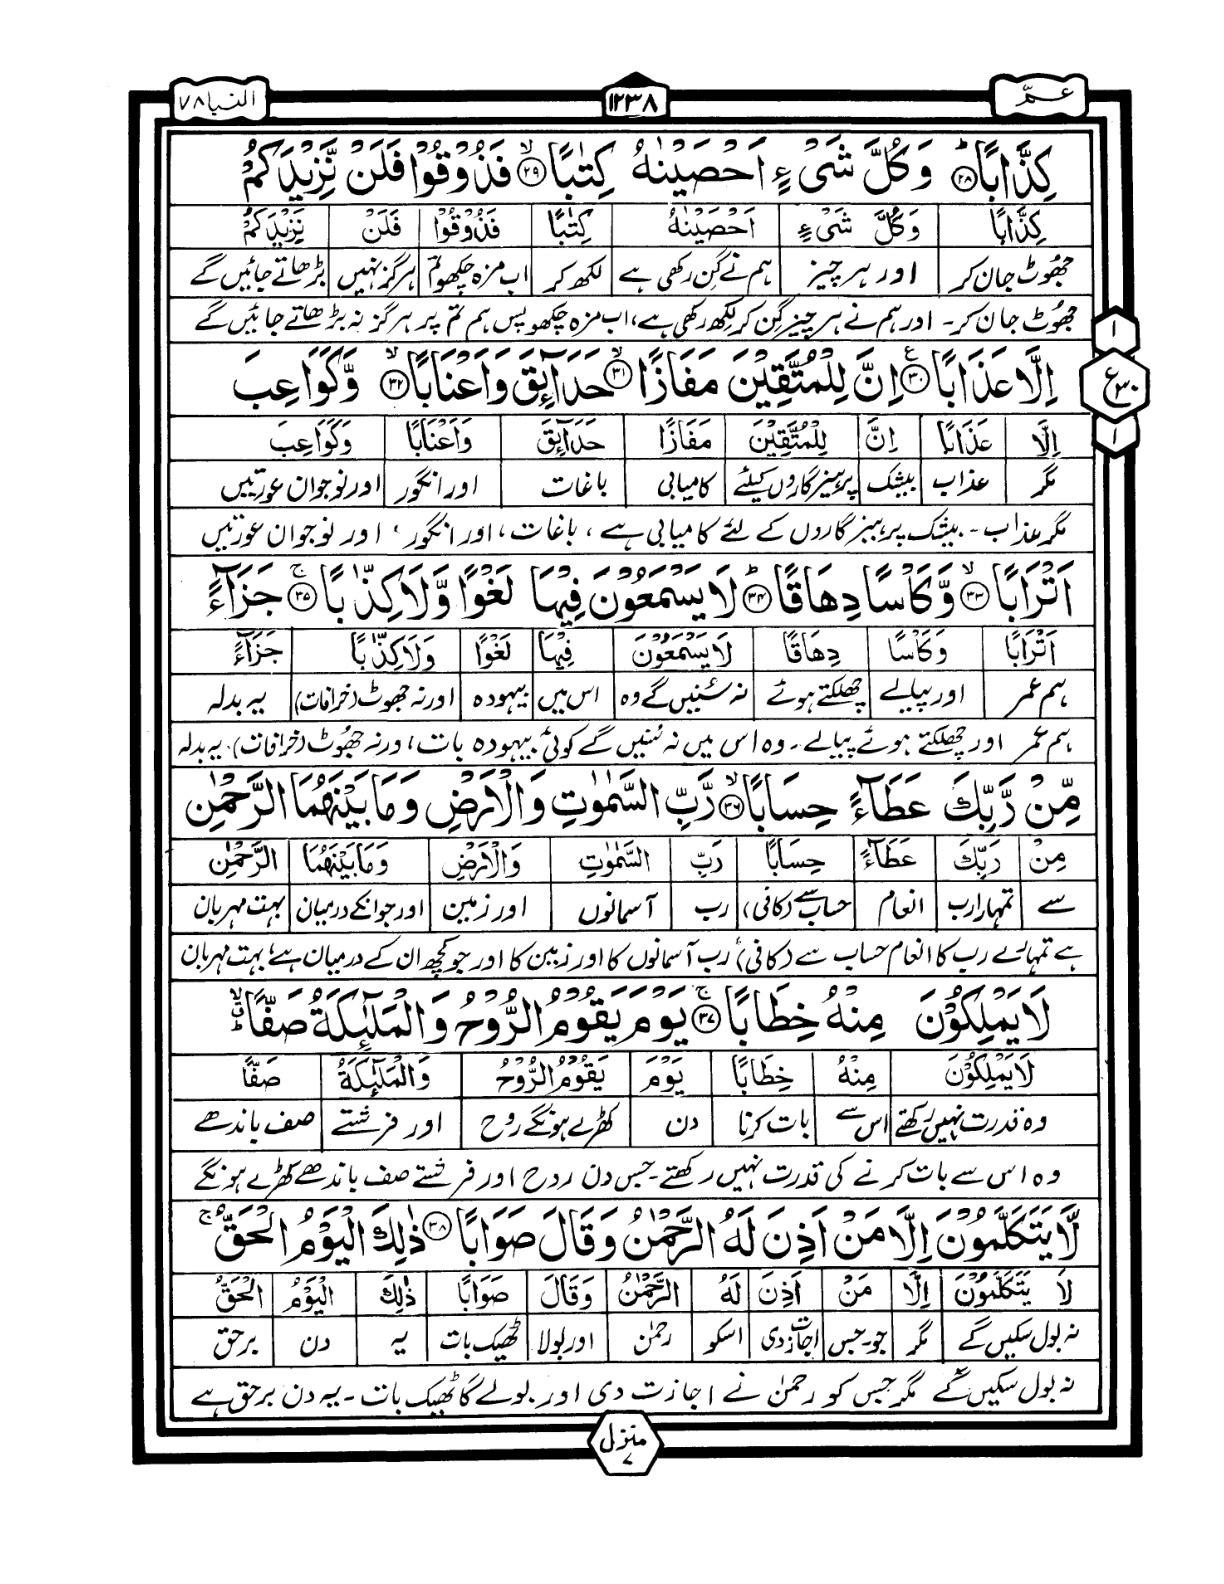 عـمّ
١٢٣٨
النبا ٧٨
كِذَّابًا ؕ‏﴿۲۸﴾ وَكُلَّ شَىْءٍ اَحْصَيْنٰهُ كِتٰبًا ۙ‏﴿۲۹﴾ فَذُوْقُوْا فَلَنْ نَّزِيْدَكُمْ
كِذَّابًا وَكُلَّ شَىْءٍ اَحْصَيْنٰهُ كِتٰبًا فَذُوْقُوْا فَلَنْ نَّزِيْدَكُمْ
جھُوٹ جان کر اور ہر چیز ہم نے گِن رکھی ہے لکھ کر اب مزہ چکھو تم ہرگز نہیں بڑھاتے جائیں گے
جھُوٹ جان کر۔ اور ہم نے ہر چیز گِن کر لکھ رکھی ہے، اب مزہ چکھو پس ہم تم پر ہرگز نہ بڑھاتے جائیں گے
اِلَّا عَذَابًا ﴿۳۰﴾ ع اِنَّ لِلْمُتَّقِيْنَ مَفَازًا ۙ‏﴿۳۱﴾ حَدَآئِقَ وَاَعْنَابًا ۙ‏﴿۳۲﴾ وَّكَوَاعِبَ
اِلَّا عَذَابًا اِنَّ لِلْمُتَّقِيْنَ مَفَازًا حَدَآئِقَ وَاَعْنَابًا وَكَوَاعِبَ
مگر عذاب بیشک پرہیزگاروں کیلئے کامیابی باغات اور انگور اور نوجوان عورتیں
مگر عذاب۔ بیشک پرہیزگاروں کے لئے کامیابی ہے، باغات، اور انگور، اور نوجوان عورتیں
اَتْرَابًا ۙ‏﴿۳۳﴾ وَّكَاْسًا دِهَاقًا ؕ‏﴿۳۴﴾ لَا يَسْمَعُوْنَ فِيْهَا لَغْوًا وَّلَا كِذّٰبًا ۚ‏﴿۳۵﴾ جَزَآءً
اَتْرَابًا وَكَاْسًا دِهَاقًا لَا يَسْمَعُوْنَ فِيْهَا لَغْوًا وَلَا كِذّٰبًا جَزَآءً
ہم عمر اور پیالے چھلکتے ہوئے نہ سُنیں گے وہ اس میں بیہودہ اور نہ جھوٹ (خرافات) یہ بدلہ
ہم عمر اور چھلکتے ہوئے پیالے۔ وہ اس میں نہ سُنیں گے کوئی بیہودہ بات، اور نہ جھُوٹ (خرافات)۔ یہ بدلہ
مِّنْ رَّبِّكَ عَطَآءً حِسَابًا ۙ‏﴿۳۶﴾ رَّبِّ السَّمٰوٰتِ وَالْاَرْضِ وَمَا بَيْنَهُمَا الرَّحْمٰنِ
مِنْ رَبِّكَ عَطَآءً حِسَابًا رَبِّ السَّمٰوٰتِ وَالْاَرْضِ وَمَا بَيْنَهُمَا الرَّحْمٰنِ
سے تمہارا رب انعام حساب سے (کافی) رب آسمانوں اور زمین اور جو انکے درمیان بہت مہربان
ہے تمہارے رب کا انعام حساب سے (کافی) رب آسمانوں کا اور زمین کا اور جو کچھ ان کے درمیان ہے، بہت مہربان
لَا يَمْلِكُوْنَ مِنْهُ خِطَابًا ۚ‏﴿۳۷﴾ يَوْمَ يَقُوْمُ الرُّوْحُ وَالْمَلٰٓئِكَةُ صَفًّا ؕۙ
لَا يَمْلِكُوْنَ مِنْهُ خِطَابًا يَوْمَ يَقُوْمُ الرُّوْحُ وَالْمَلٰٓئِكَةُ صَفًّا
وہ قدرت نہیں رکھتے اس سے بات کرنا دن کھڑے ہونگے روح اور فرشتے صف باندھے
وہ اس سے بات کرنے کی قدرت نہیں رکھتے۔ جس دن روح اور فرشتے صف باندھے کھڑے ہونگے
لَّا يَتَكَلَّمُوْنَ اِلَّا مَنْ اَذِنَ لَهُ الرَّحْمٰنُ وَقَالَ صَوَابًا ﴿۳۸﴾ ذٰلِكَ الْيَوْمُ الْحَقُّ ۚ
لَا يَتَكَلَّمُوْنَ اِلَّا مَنْ اَذِنَ لَهُ الرَّحْمٰنُ وَقَالَ صَوَابًا ذٰلِكَ الْيَوْمُ الْحَقُّ
نہ بول سکیں گے مگر جو۔جس اجازت دی اسکو رحمٰن اور بولا ٹھیک بات یہ دن برحق
نہ بول سکیں گے مگر جس کو رحمٰن نے اجازت دی اور بولے گا ٹھیک بات۔ یہ دن برحق ہے
١
ع ٣٠
١
منزل ٧